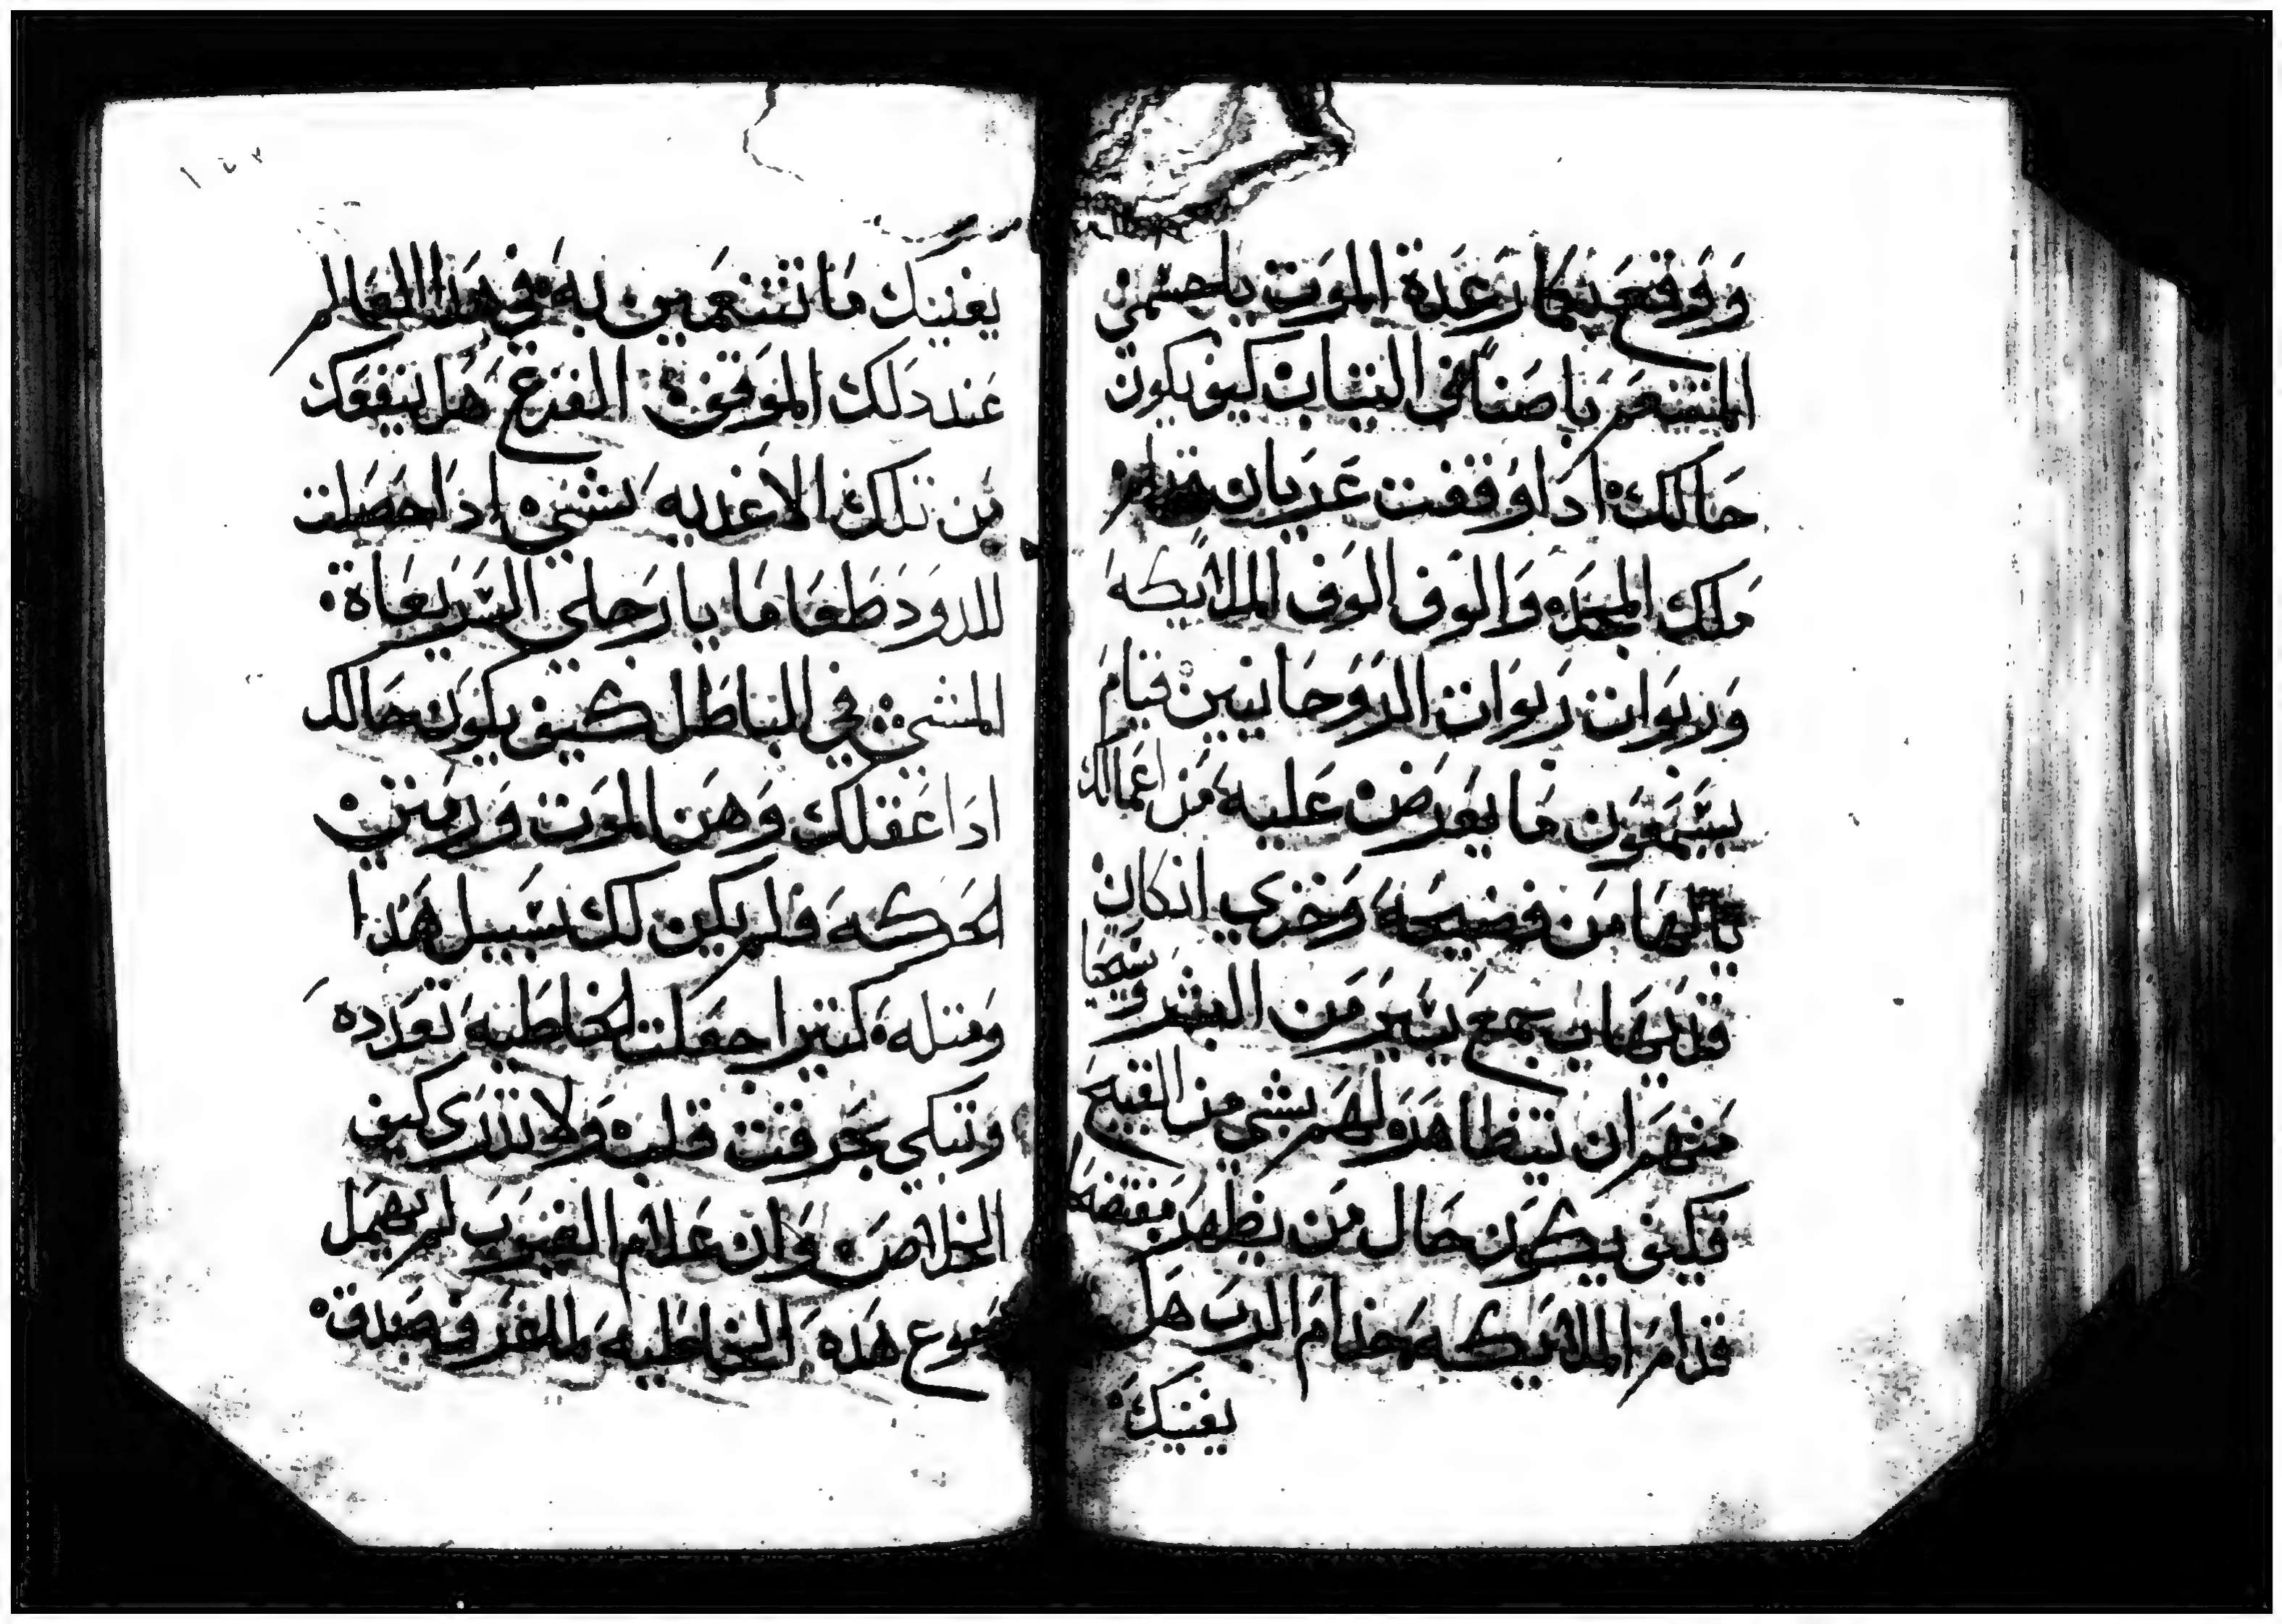 ووقع بكما رعدة الموت يا جسمي
المتنعم باصناف التياب كيف يكون
حالك ادا وقفت عريان قدام
ملك المجد والوف الوف الملايكه
وربوات ربوات الروحانيين قيام
يسمعون ما يعرض عليه من اعمالك
يالها من فضيحه وخزي ان كان
في جمع يسير من البشر وسمعا
منهم ان يتظاهر لهم بشي من القبيح
فكيف يكون حال من يظهر
قدام الملايكه خدام الرب هل
يغنيك
يغنيك ما تتنعمين به في هدا العالم
عند دلك الموقف الفزع هل ينفعك
من تلك الاغديه بشي ادا حصلت
للدود طعاما يا رجلي السريعاة
المشي في الباطل كيف يكون حالك
ادا عقلك وهن الموت ورمتي
الحركه فلم يكن لك سبيل هدا
ومتله كتيرا جعلت الخاطيه تعدده
وتبكي بحرقت قلب ولا تدري كيف
الخلاص وان علام الغيوب لم يهمل
دموع هده الخاطيه لما عرف صدق